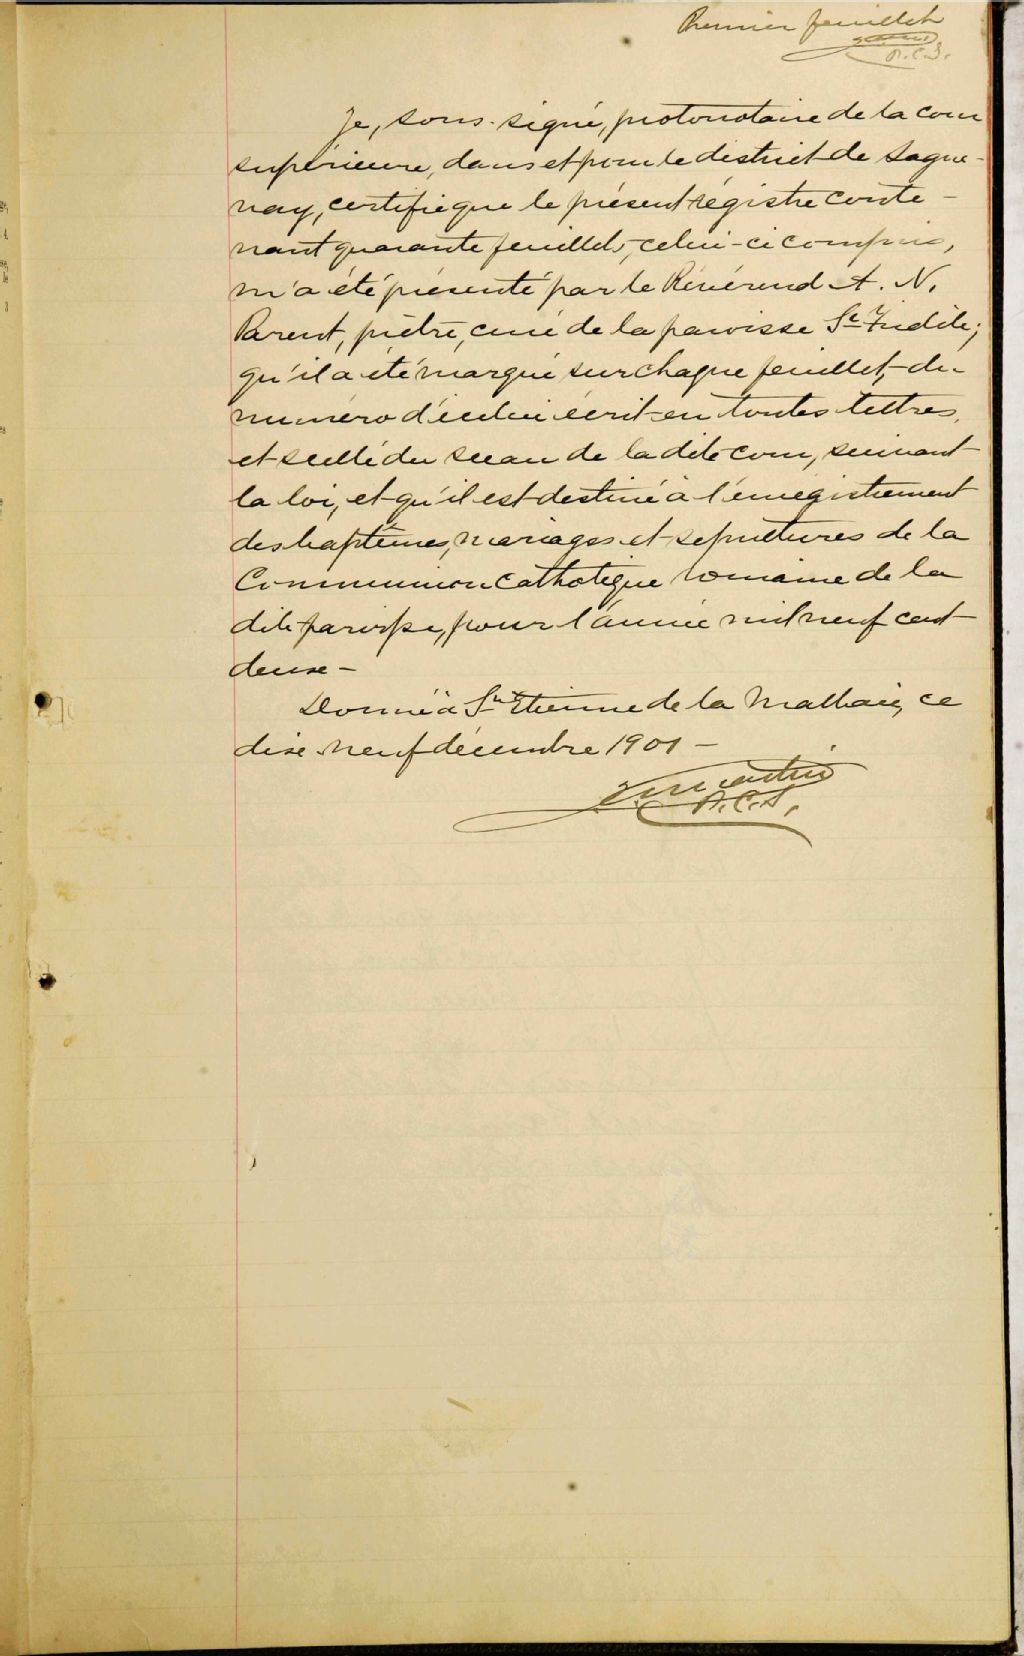 Premier feuillet
P.C.S.
Je, sous-signé, protonotaire de la cour
supérieure, dans et pour le district de Sague-
nay, certifie que le présent régistre conte-
nant quarante feuillets, celui-ci compris,
m'a été présenté par le Révérend A. N.
Parent, prêtre, curé de la paroisse St Fidèle;
qu'il a été marqué sur chaque feuillet, du
numéro d'icelui écrit en toutes lettres,
et scellé du sceau de la dite cour, suivant
la loi, et qu'il est destiné à l'enregistrement
des baptêmes, mariages et sépultures de la
Communion Catholique romaine de la
dite paroisse, pour l'année mil neuf cent
deux -
Donné à St Etienne de la Malbaie, ce
dix neuf décembre 1901 -
P.C.S.